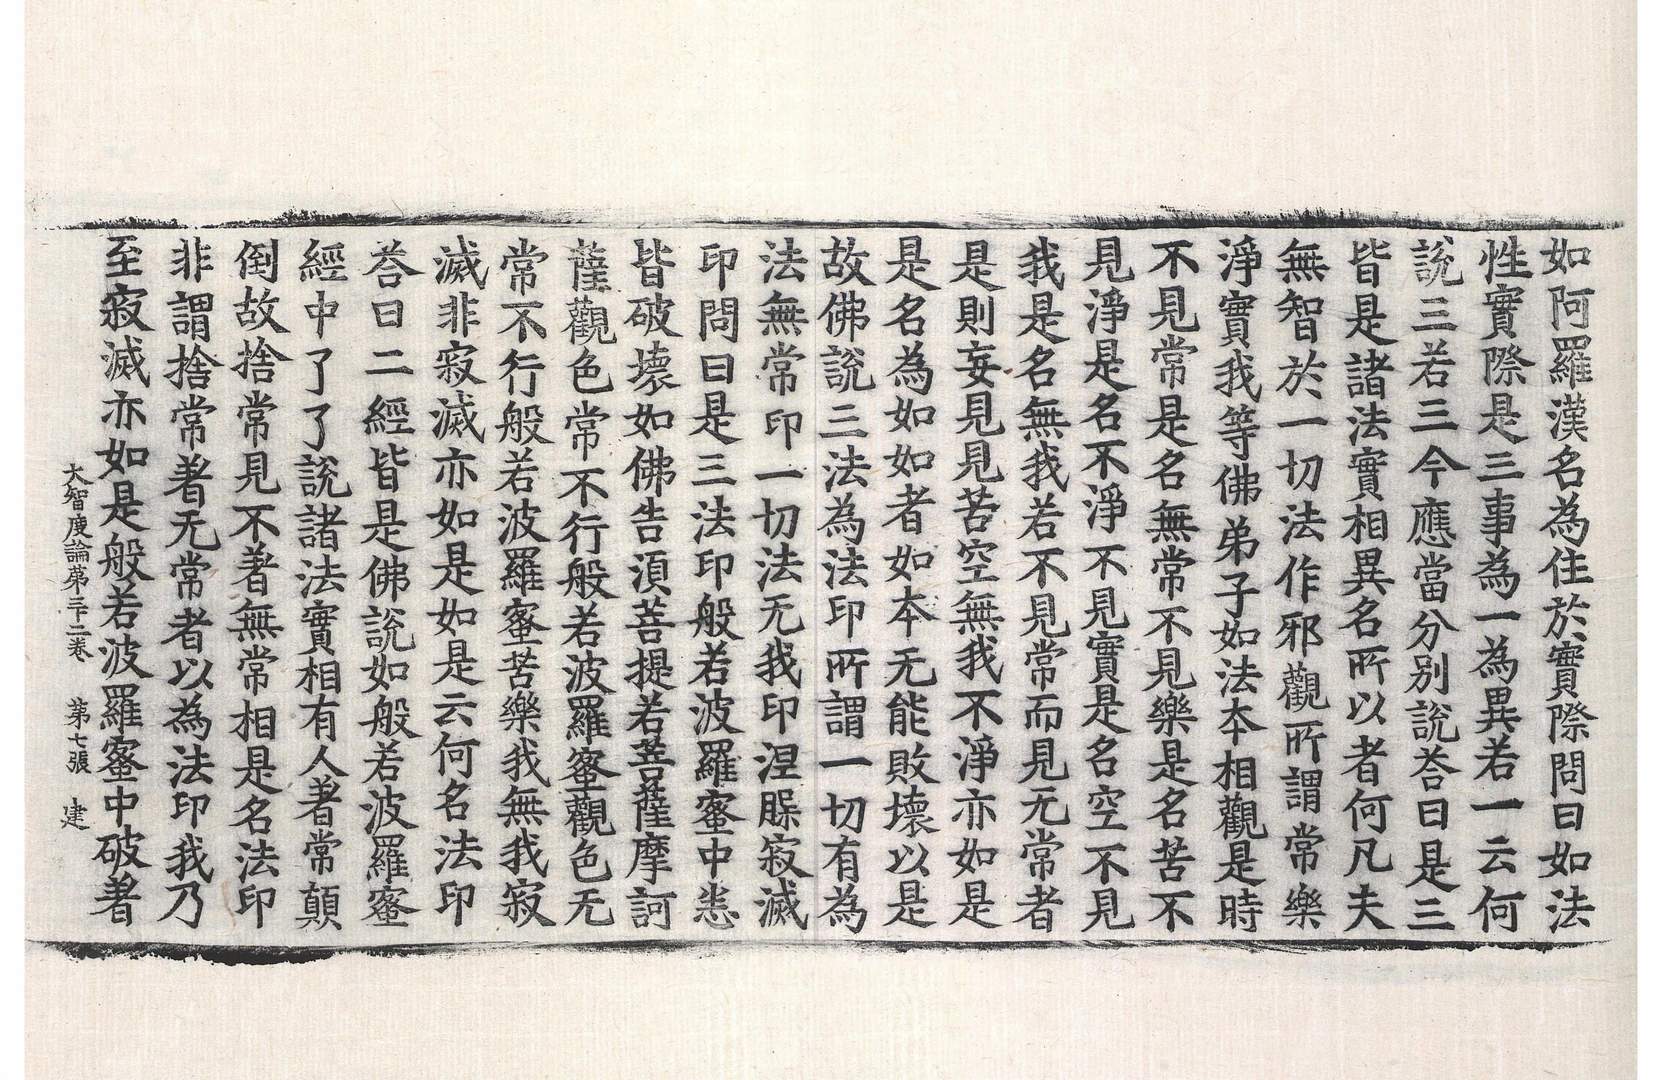 如阿羅漢名為住於實際問曰如法
性實際是三事為一為異若一云何
說三若三今應當分別說荅曰是三
皆是諸法實相異名所以者何凡夫
無智於一切法作邪觀所謂常樂
淨實我等佛弟子如法本相觀是時
不見常是名無常不見樂是名苦不
見淨是名不淨不見實是名空不見
我是名無我若不見常而見无常者
是則妄見見苦空無我不淨亦如是
是名為如如者如本无能敗壞以是
故佛說三法為法印所謂一切有為
法無常印一切法无我印涅槃寂滅
印問曰是三法印般若波羅蜜中悉
皆破壞如佛告須菩提若菩薩摩訶
薩觀色常不行般若波羅蜜觀色无
常不行般若波羅蜜苦樂我無我寂
滅非寂滅亦如是如是云何名法印
荅曰二經皆是佛說如般若波羅蜜
經中了了說諸法實相有人著常顛
倒故捨常見不著無常相是名法印
非謂捨常著无常者以為法印我乃
至寂滅亦如是般若波羅蜜中破著
大智度論第三十二卷 第七張 建